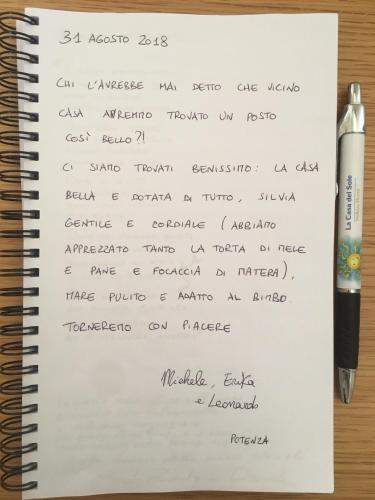 31 AGOSTO 2018
CHI L'AVREBBE MAI DETTO CHE VICINO
CASA AVREMMO TROVATO UN POSTO
COSÌ BELLO?!
CI SIAMO TROVATI BENISSIMO: LA CASA
BELLA E DOTATA DI TUTTO, SILVIA
GENTILE E CORDIALE (ABBIAMO
APPREZZATO TANTO LA TORTA DI MELE
E PANE E FOCACCIA DI MATERA),
MARE PULITO E ADATTO AL BIMBO.
TORNEREMO CON PIACERE
Michele, Erika
e Leonardo
POTENZA
La Casa del Sole